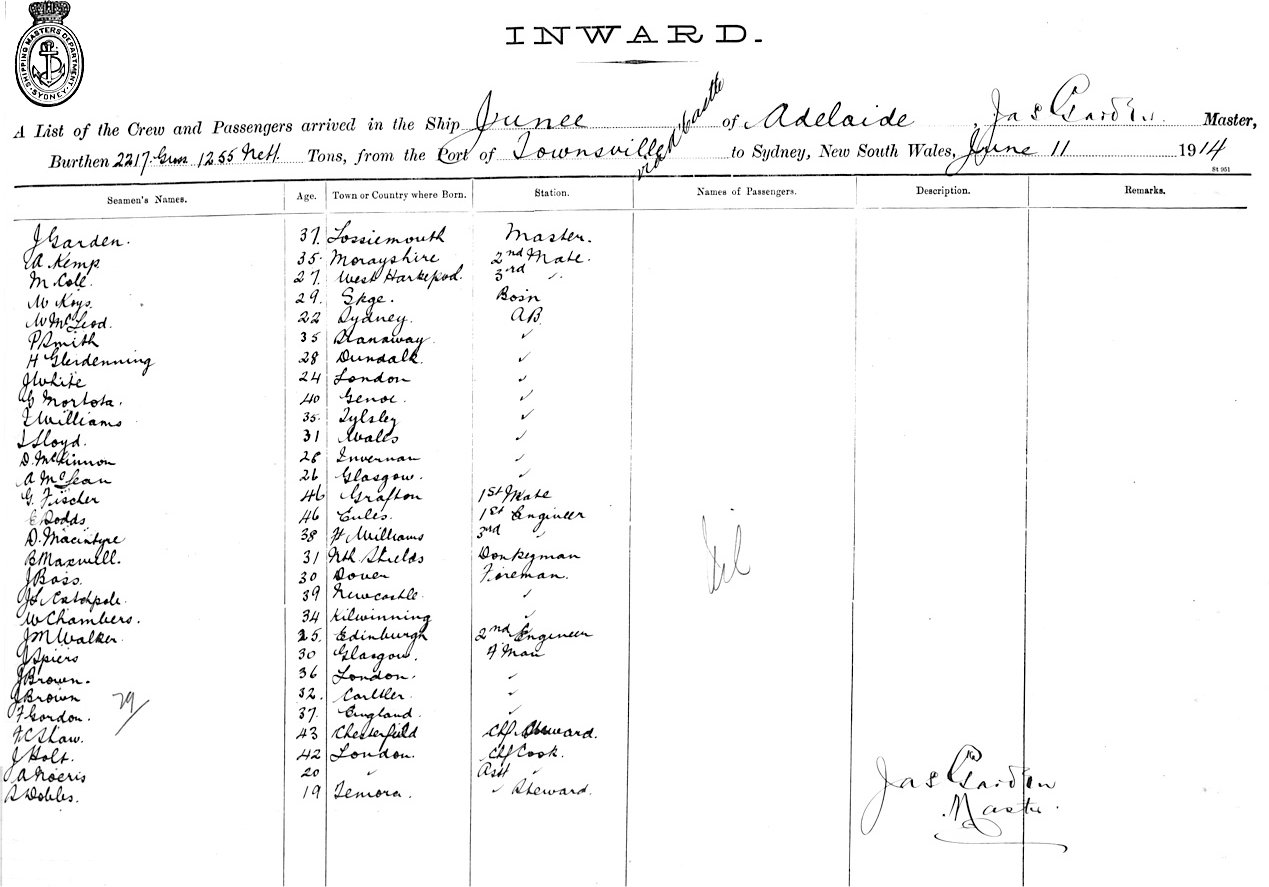 SHIPPING MASTERS DEPARTMENT SYDNEY
INWARD.
A List of the Crew and Passengers arrived in the Ship Junee of Adelaide, Jas Garden Master,
Burthen 2217 Gross 1255 Nett. Tons, from the Port of Townsville via N Castle to Sydney, New South Wales, June 11 1914
St 951
Seamen's Names. Age. Town or Country where Born. Station. Names of Passengers. Description. Remarks.
J Garden. 37. Lossiemouth Master.
A Kemp 35. Morayshire 2nd Mate.
M. Cole. 27. West 3rd "
W Keys. 29. Bosn
W McLeod. 22 Sydney. AB.
P Smith 35 "
H Glendenning 28 Dundalk. "
J White 24 London "
G Mortola. 40 "
Williams 35. "
Lloyd. 31 Wales "
D. McKinnon 28 "
A McLean 26 Glasgow. "
G. Fischer 46 Grafton 1st Mate
E Dodds 46 1st Engineer
D. Macintyre 38 Ft Williams 3rd "
B Maxwell. 31 Nth Shields Donkeyman
J Bass. 30 Dover Fireman.
Catchpole. 39 Newcastle. "
W Chambers. 34 Kilwinning "
J M Walker. 25. Edinburgh 2nd Engineer
J Spiers 30 Glasgow. F Man
J Brown. 36 London. "
J Brown 32. "
F Gordon. 37. England. "
Shaw. 43 Chesterfield Chf Steward.
J Holt. 42 London. Chf Cook.
A 20 " Asst "
Dobbs. 19 Temora. " Steward.
Nil
29/
Jas Garden
Master